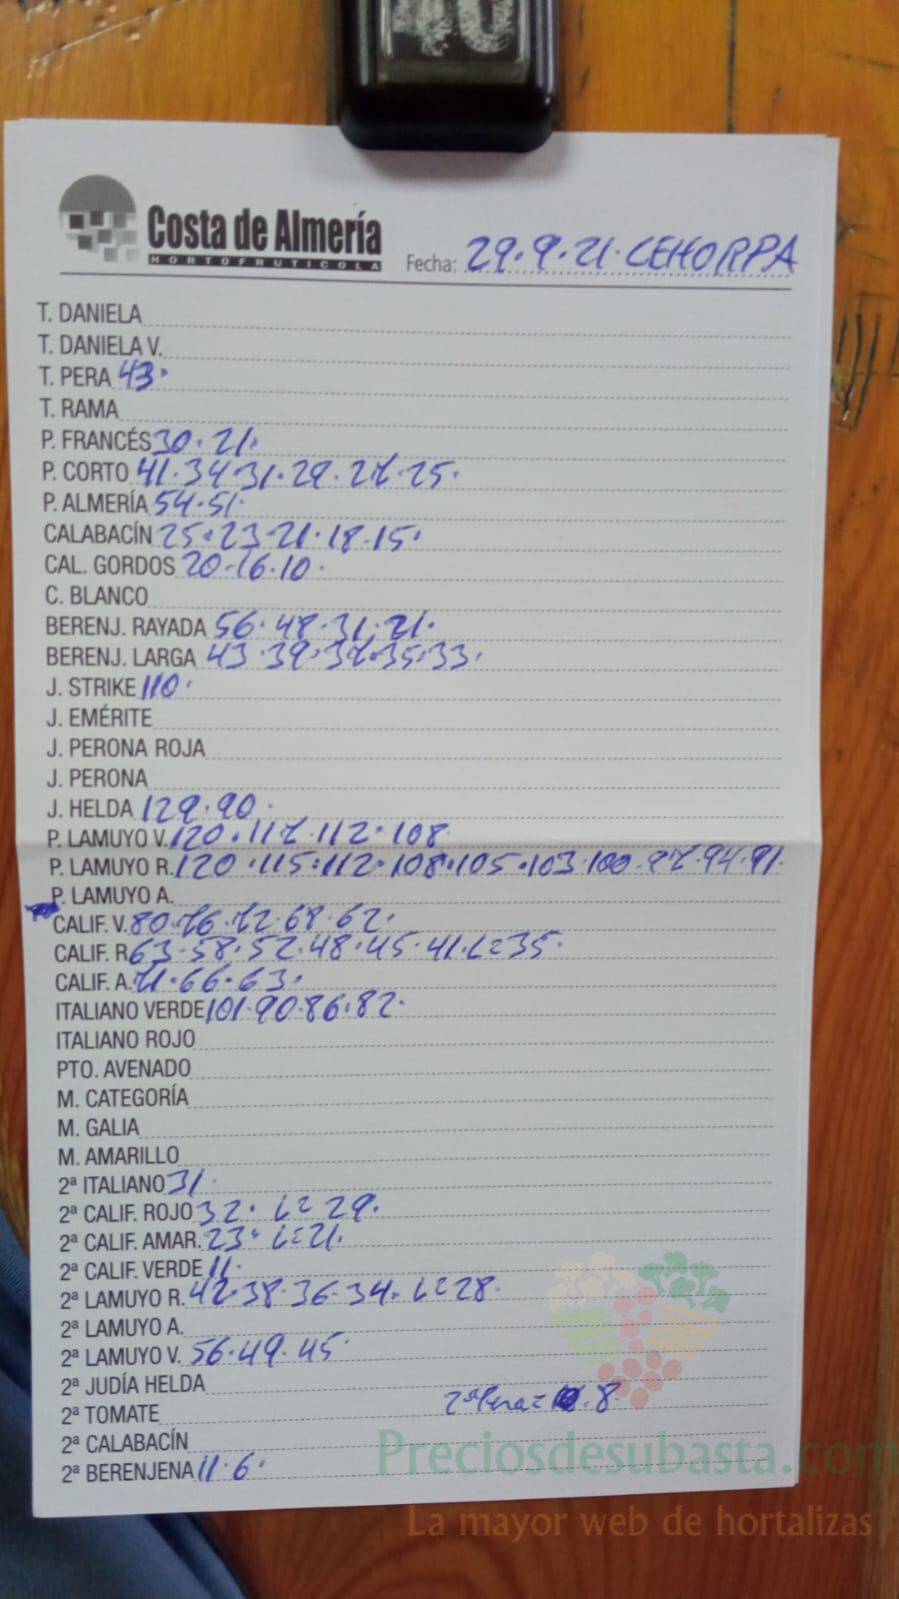 Costa de Almería
HORTOFRUTICOLA
Fecha: 29.9.21. CEHORPA
T. DANIELA
T. DANIELA V.
T. PERA 43.
T. RAMA
P. FRANCÉS 30.21.
P. CORTO 41.34.31.29.27.25.
P. ALMERÍA 54.51.
CALABACÍN 25.23.21.18.15.
CAL. GORDOS 20.16.10.
C. BLANCO
BERENJ. RAYADA 56.48.31.21.
BERENJ. LARGA 43.39.37.35.33.
J. STRIKE 110.
J. EMÉRITE
J. PERONA ROJA
J. PERONA
J. HELDA 129.90.
P. LAMUYO V. 120.117.112.108
P. LAMUYO R. 120.115.112.108.105.103.100.97.94.91.
P. LAMUYO A.
CALIF. V. 80.76.72.68.62.
CALIF. R 63.58.52.48.45.41.L=35.
CALIF. A. 71.66.63.
ITALIANO VERDE 101.90.86.82.
ITALIANO ROJO
PTO. AVENADO
M. CATEGORÍA
M. GALIA
M. AMARILLO
2ª ITALIANO 31.
2ª CALIF. ROJO 32. L=29.
2ª CALIF. AMAR. 23. L=21.
2ª CALIF. VERDE 11.
2ª LAMUYO R. 42.38.36.34. L=28.
2ª LAMUYO A.
2ª LAMUYO V. 56.49.45.
2ª JUDÍA HELDA
2ª Pera = 8.
2ª TOMATE
2ª CALABACÍN
Preciosdesubasta.com
2ª BERENJENA 11.6.
La mayor web de hortalizas